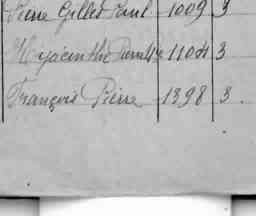 Pierre Gilles Paul 1009 3
Hyacinthe 1104 3
François Pierre 1398 3.